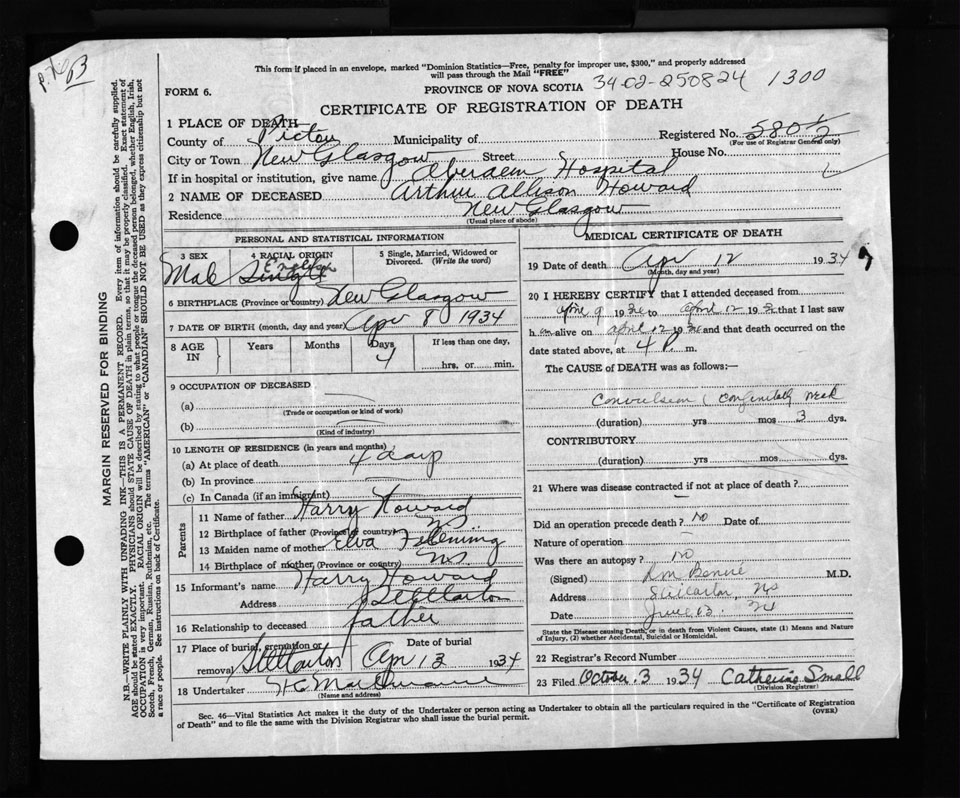 p. 763
This form if placed in an envelope, marked "Dominion Statistics—Free, penalty for improper use, $300," and properly addressed
will pass through the Mail "FREE"
FORM 6.
PROVINCE OF NOVA SCOTIA 34 02-250824 1300
CERTIFICATE OF REGISTRATION OF DEATH
1 PLACE OF DEATH
County of Pictou Municipality of Registered No. 580½
(For use of Registrar General only)
City or Town New Glasgow Street House No.
If in hospital or institution, give name Aberdeen Hospital
2 NAME OF DECEASED Arthur Allison Howard
Residence New Glasgow
(Usual place of abode)
PERSONAL AND STATISTICAL INFORMATION
3 SEX 4 RACIAL ORIGIN 5 Single, Married, Widowed or
Divorced. (Write the word)
Male English Single
6 BIRTHPLACE (Province or country) New Glasgow
7 DATE OF BIRTH (month, day and year) Apr 8 1934
8 AGE IN Years Months Days If less than one day,
4 hrs. or min.
9 OCCUPATION OF DECEASED
(a)
(Trade or occupation or kind of work)
(b)
(Kind of industry)
10 LENGTH OF RESIDENCE (in years and months)
(a) At place of death 4 days
(b) In province
(c) In Canada (if an immigrant)
Parents
11 Name of father Harry Howard
12 Birthplace of father (Province or country) N.S.
13 Maiden name of mother Elva Fleming
14 Birthplace of mother, (Province or country) N.S.
15 Informant's name Harry Howard
Address Stellarton
16 Relationship to deceased father
17 Place of burial, cremation or Date of burial
removal Stellarton Apr 13 1934
18 Undertaker
(Name and address)
MEDICAL CERTIFICATE OF DEATH
19 Date of death Apr 12 1934
(Month, day and year)
20 I HEREBY CERTIFY that I attended deceased from
April 9 1934 to April 12 193 that I last saw
h alive on April 12 1934 and that death occurred on
date stated above, at 4 P m.
The CAUSE of DEATH was as follows:—
Convulsion (Congenitally weak
(duration) yrs mos 3 dys.
CONTRIBUTORY
(duration) yrs mos dys.
21 Where was disease contracted if not at place of death?
Did an operation precede death? No Date of
Nature of operation
Was there an autopsy? No
(Signed) M.D.
Address Stellarton, NS
Date
State the Disease causing Death, or in death from Violent Causes, state (1) Means and Nature
of Injury, (2) whether Accidental, Suicidal or Homicidal.
22 Registrar's Record Number
23 Filed October 3 1934 Catherine Small
(Division Registrar)
Sec. 46—Vital Statistics Act makes it the duty of the Undertaker or person acting as Undertaker to obtain all the particulars required in the "Certificate of Registration
of Death" and to file the same with the Division Registrar who shall issue the burial permit. (OVER)
MARGIN RESERVED FOR BINDING
N.B.—WRITE PLAINLY WITH UNFADING INK—THIS IS A PERMANENT RECORD. Every item of information should be carefully supplied.
AGE should be stated EXACTLY. PHYSICIANS should STATE CAUSE OF DEATH in plain terms, so that it may be properly classified. Exact statement of
OCCUPATION is very important. RACIAL ORIGIN will be described by stating to what people or tongue the deceased person belonged, whether English, Irish,
Scotch, French, German, Russian, Ruthenian, etc. The terms "AMERICAN" or "CANADIAN" SHOULD NOT BE USED as they express citizenship but not
a race or people. See instructions on back of Certificate.